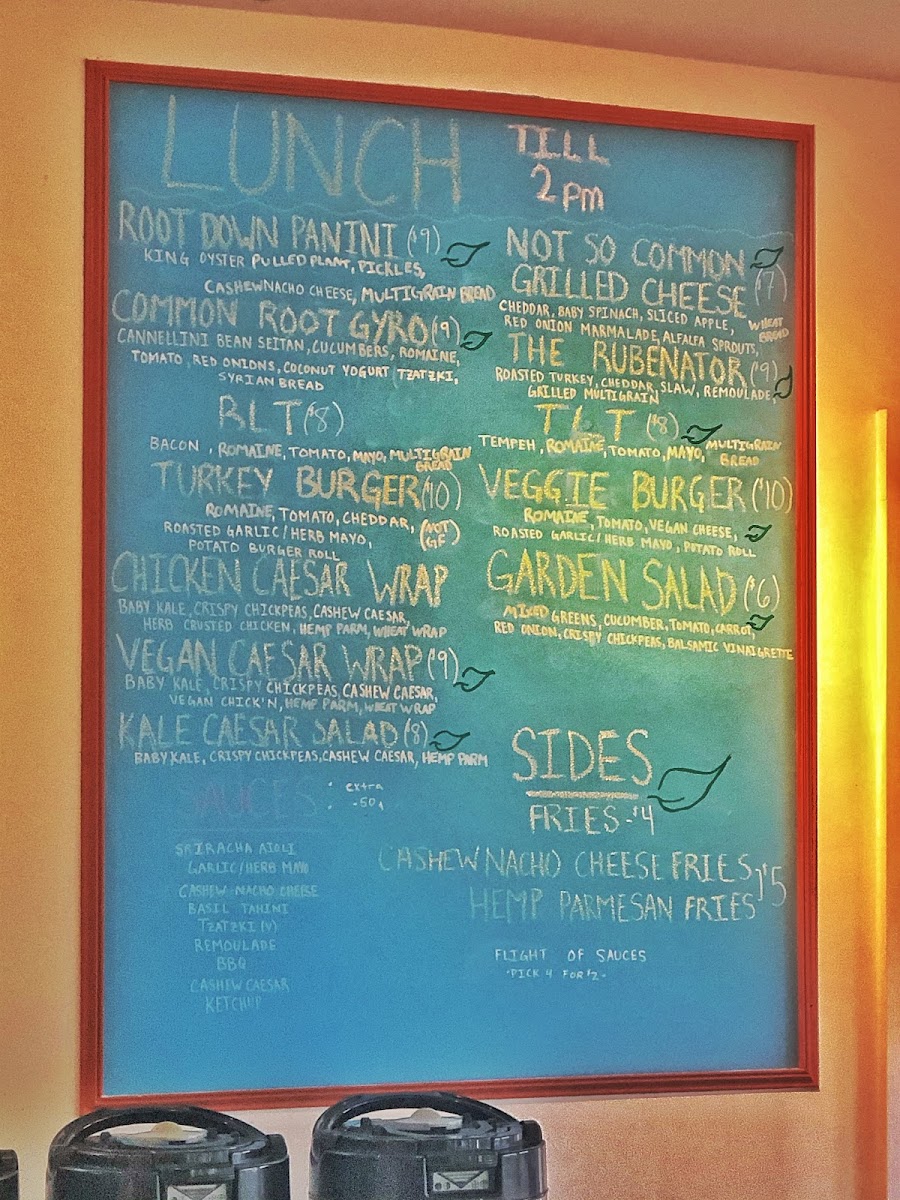 LUNCH
TILL
2 pm
ROOT DOWN PANINI ($9)
KING OYSTER PULLED PLANT, PICKLES,
CASHEW NACHO CHEESE, MULTIGRAIN BREAD
COMMON ROOT GYRO ($9)
CANNELLINI BEAN SEITAN, CUCUMBERS, ROMAINE,
TOMATO, RED ONIONS, COCONUT YOGURT TZATZKI,
SYRIAN BREAD
BLT ($8)
BACON, ROMAINE, TOMATO, MAYO, MULTIGRAIN
BREAD
TURKEY BURGER ($10)
ROMAINE, TOMATO, CHEDDAR, (NOT
ROASTED GARLIC/HERB MAYO, GF)
POTATO BURGER ROLL
CHICKEN CAESAR WRAP
BABY KALE, CRISPY CHICKPEAS, CASHEW CAESAR,
HERB CRUSTED CHICKEN, HEMP PARM, WHEAT WRAP
VEGAN CAESAR WRAP ($9)
BABY KALE, CRISPY CHICKPEAS, CASHEW CAESAR,
VEGAN CHICK'N, HEMP PARM, WHEAT WRAP
KALE CAESAR SALAD ($8)
BABY KALE, CRISPY CHICKPEAS, CASHEW CAESAR, HEMP PARM
SAUCES: extra
.50¢
SRIRACHA AIOLI
GARLIC/HERB MAYO
CASHEW NACHO CHEESE
BASIL TAHINI
TZATZKI (V)
REMOULADE
BBQ
CASHEW CAESAR
KETCHUP
NOT SO COMMON
GRILLED CHEESE ($7)
CHEDDAR, BABY SPINACH, SLICED APPLE, WHEAT
RED ONION MARMALADE, ALFALFA SPROUTS, BREAD
THE RUBENATOR ($9)
ROASTED TURKEY, CHEDDAR, SLAW, REMOULADE,
GRILLED MULTIGRAIN
TLT ($8)
TEMPEH, ROMAINE, TOMATO, MAYO, MULTIGRAIN
BREAD
VEGGIE BURGER ($10)
ROMAINE, TOMATO, VEGAN CHEESE,
ROASTED GARLIC/HERB MAYO, POTATO ROLL
GARDEN SALAD ($6)
MIXED GREENS, CUCUMBER, TOMATO, CARROT,
RED ONION, CRISPY CHICKPEAS, BALSAMIC VINAIGRETTE
SIDES
FRIES - $4
CASHEW NACHO CHEESE FRIES
HEMP PARMESAN FRIES } $5
FLIGHT OF SAUCES
"PICK 4 FOR $2"